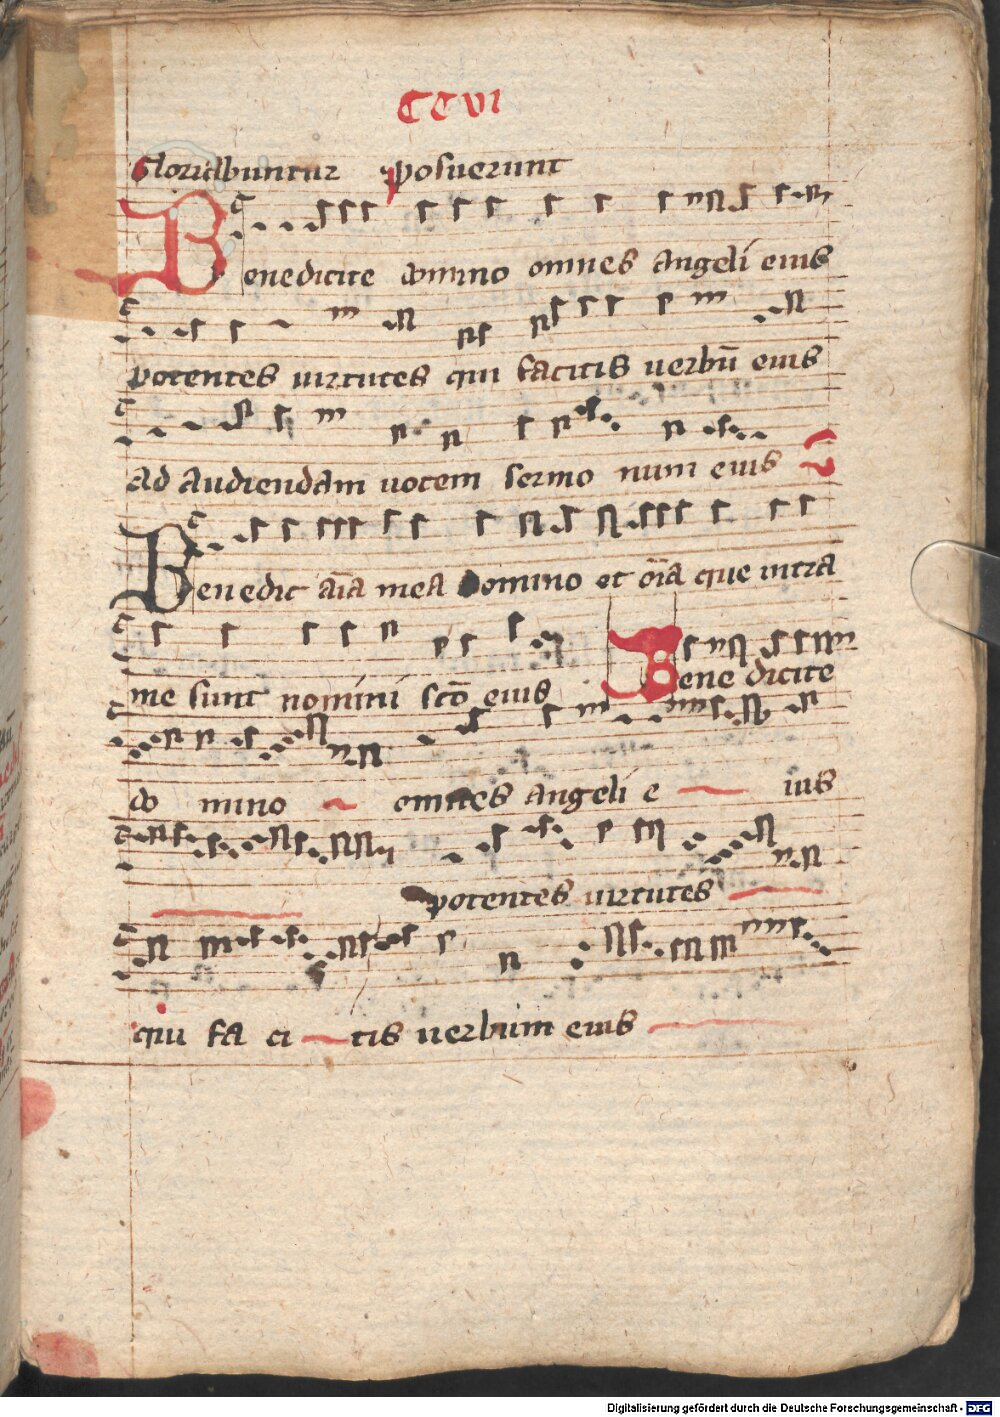 CCVI
Gloriabuntur posuerunt
Benedicite domino omnes angeli eius
potentes virtutes qui facitis verbū eius
Ad audiendam vocem sermo num eius
Benedic aīa mea Domino et oīa que intra
me sunt nomini sctō eius Bene dicite
do mino omnes angeli e ius
potentes virtutes
qui fa ci tis verbum eius
Digitalisierung gefördert durch die Deutsche Forschungsgemeinschaft - DFG